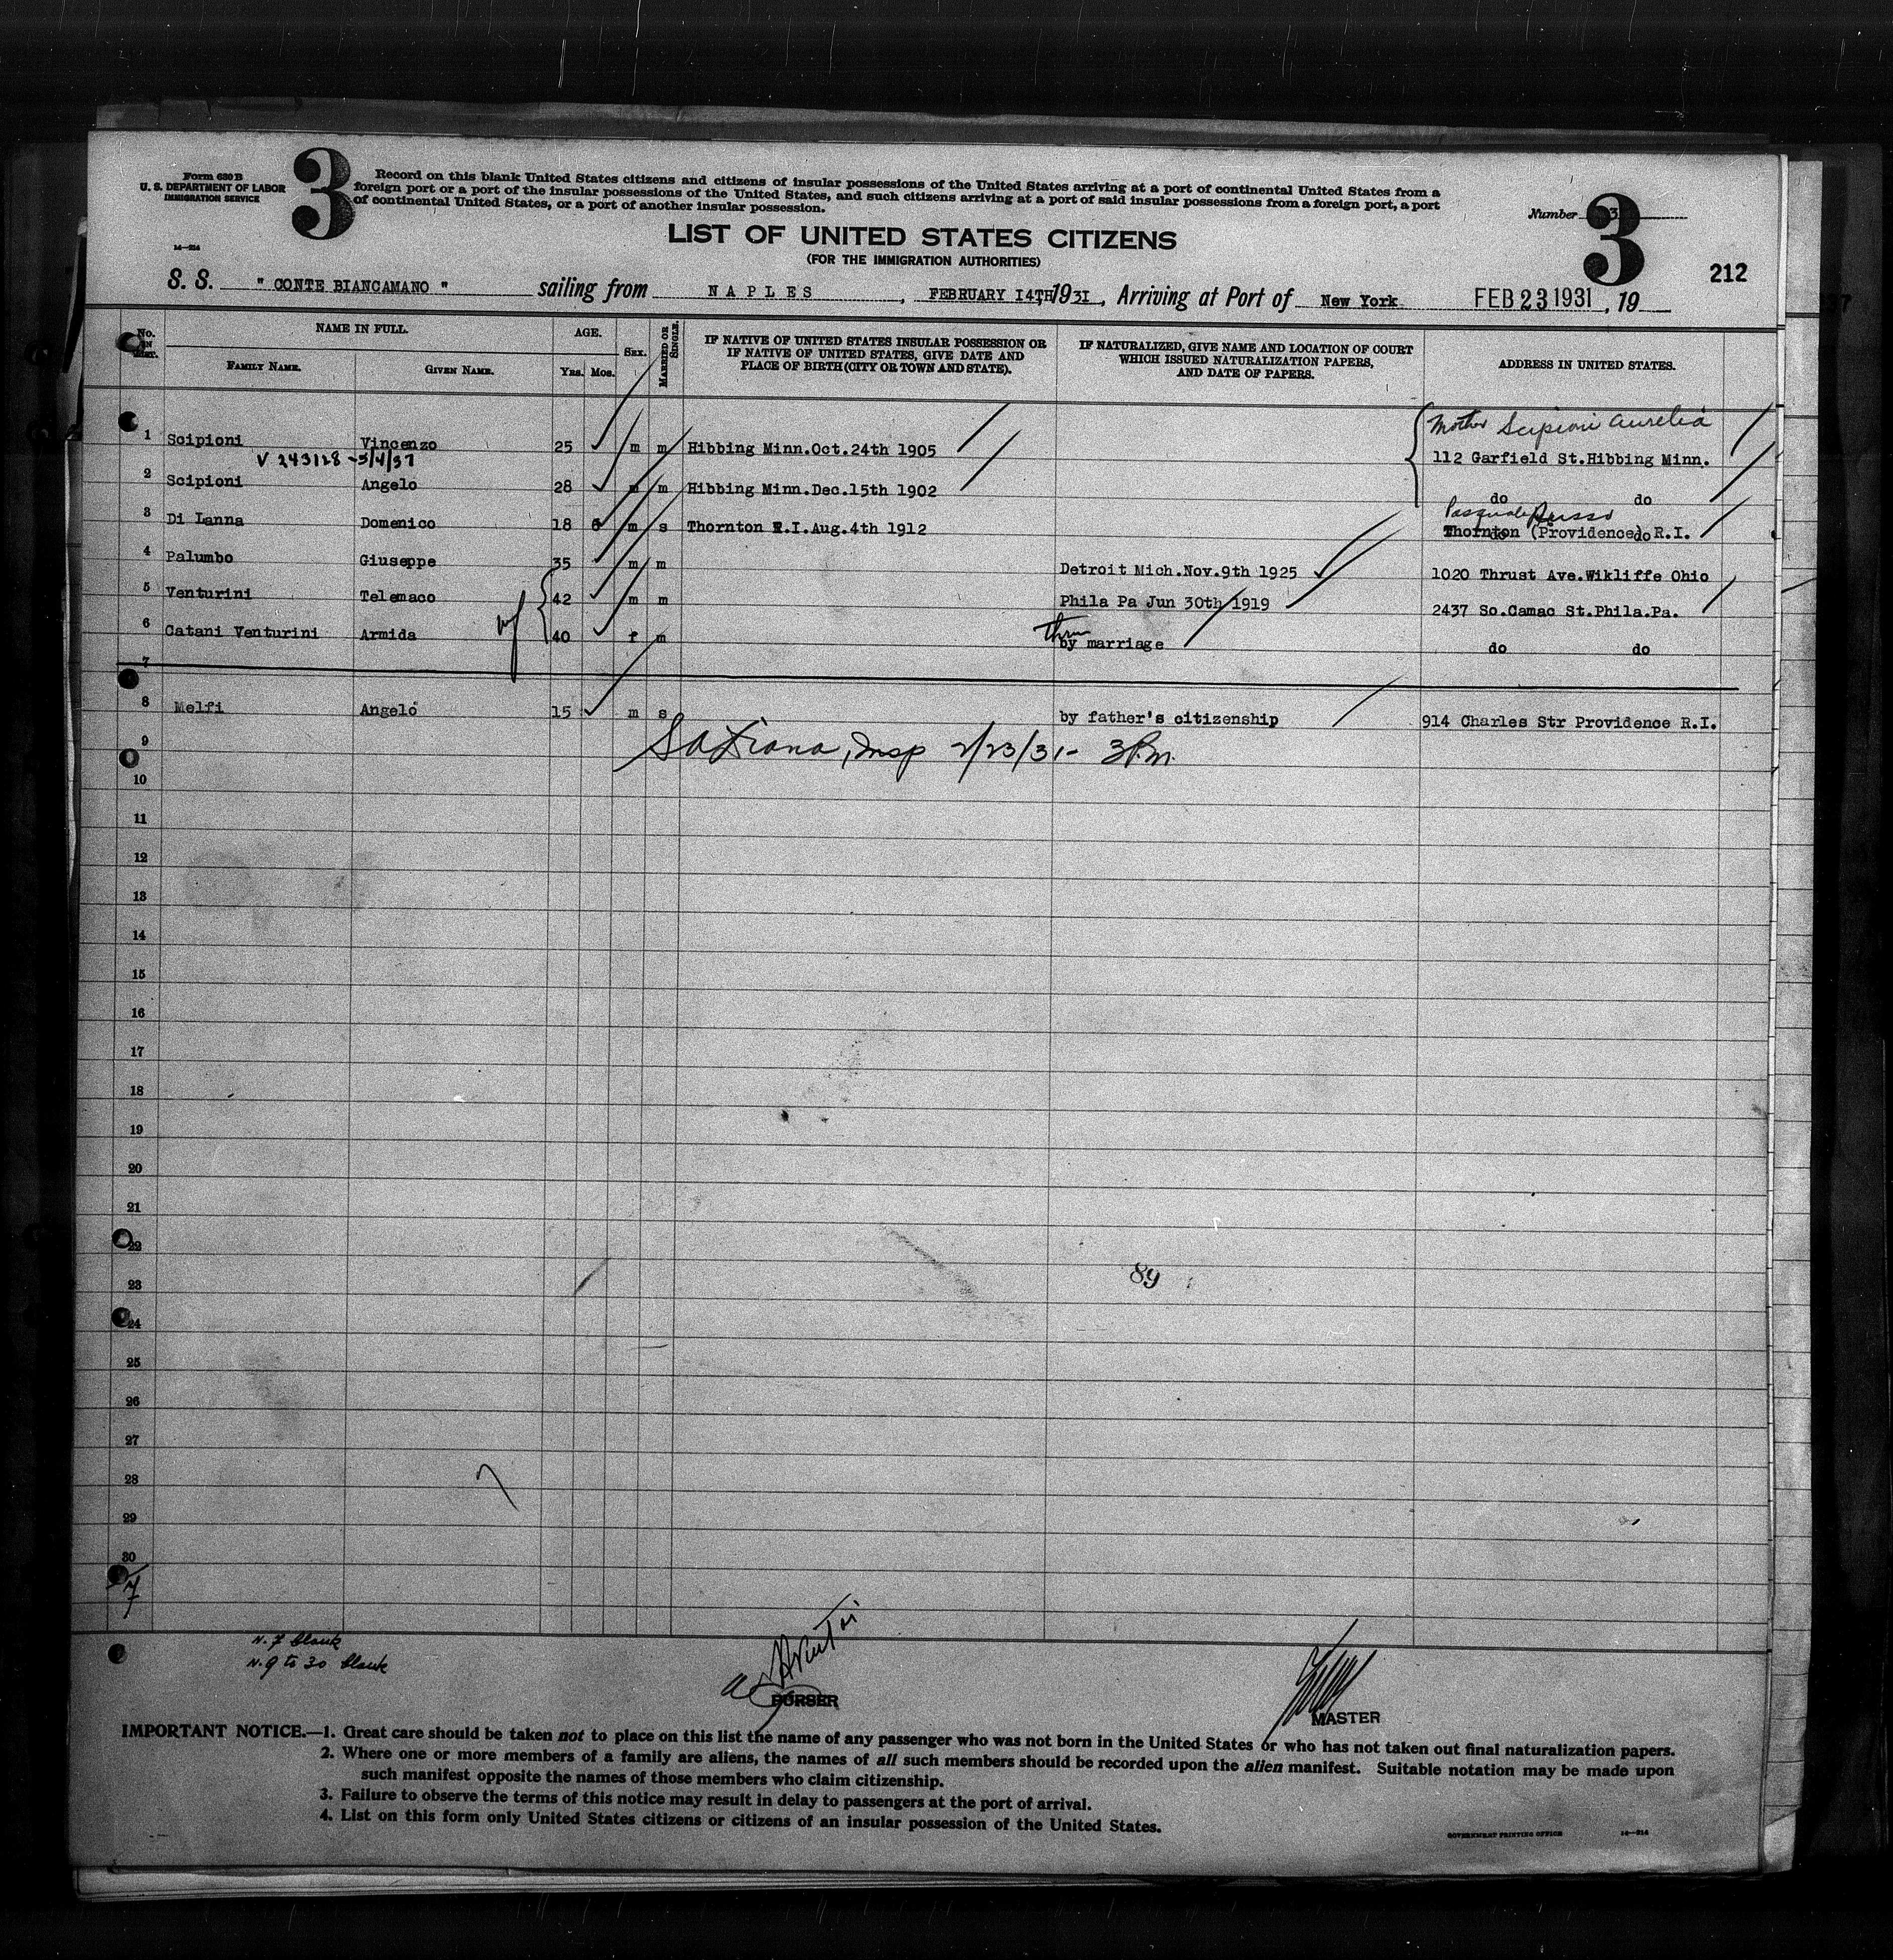 Form 630 B
U. S. DEPARTMENT OF LABOR
IMMIGRATION SERVICE
14—214
3
Record on this blank United States citizens and citizens of insular possessions of the United States arriving at a port of continental United States from a
foreign port or a port of the insular possessions of the United States, and such citizens arriving at a port of said insular possessions from a foreign port, a port
of continental United States, or a port of another insular possession.
Number 3
3
LIST OF UNITED STATES CITIZENS
(FOR THE IMMIGRATION AUTHORITIES)
212
S. S. " CONTE BIANCAMANO " sailing from NAPLES, FEBRUARY 14TH 1931, Arriving at Port of New York FEB 23 1931, 19
No. IN LIST. NAME IN FULL. AGE. SEX. MARRIED OR SINGLE. IF NATIVE OF UNITED STATES INSULAR POSSESSION OR IF NATIVE OF UNITED STATES, GIVE DATE AND PLACE OF BIRTH (CITY OR TOWN AND STATE). IF NATURALIZED, GIVE NAME AND LOCATION OF COURT WHICH ISSUED NATURALIZATION PAPERS, AND DATE OF PAPERS. ADDRESS IN UNITED STATES.
FAMILY NAME. GIVEN NAME. YRS. MOS.
Mother Scipioni Aurelia
1 Scipioni Vincenzo 25 m m Hibbing Minn.Oct.24th 1905 112 Garfield St.Hibbing Minn.
V 243128 - 5/4/37
2 Scipioni Angelo 28 m m Hibbing Minn.Dec.15th 1902 do do
Pasquale Russo
3 Di Lanna Domenico 18 6 m s Thornton R.I.Aug.4th 1912 Thornton (Providence) R.I.
do do
4 Palumbo Giuseppe 35 m m Detroit Mich.Nov.9th 1925 1020 Thrust Ave.Wikliffe Ohio
5 Venturini Telemaco 42 m m Phila Pa Jun 30th 1919 2437 So.Camac St.Phila.Pa.
6 Catani Venturini Armida wf 40 f m thru by marriage do do
7
8 Melfi Angelo 15 m s by father's citizenship 914 Charles Str Providence R.I.
Insp 2/23/31 - 3 P.m.
9
10
11
12
13
14
15
16
17
18
19
20
21
22
89
23
24
25
26
27
28
29
30
7
N. 7 blank
N. 9 to 30 blank
PURSER
MASTER
IMPORTANT NOTICE.—1. Great care should be taken not to place on this list the name of any passenger who was not born in the United States or who has not taken out final naturalization papers.
2. Where one or more members of a family are aliens, the names of all such members should be recorded upon the alien manifest. Suitable notation may be made upon
such manifest opposite the names of those members who claim citizenship.
3. Failure to observe the terms of this notice may result in delay to passengers at the port of arrival.
4. List on this form only United States citizens or citizens of an insular possession of the United States.
GOVERNMENT PRINTING OFFICE 14—214